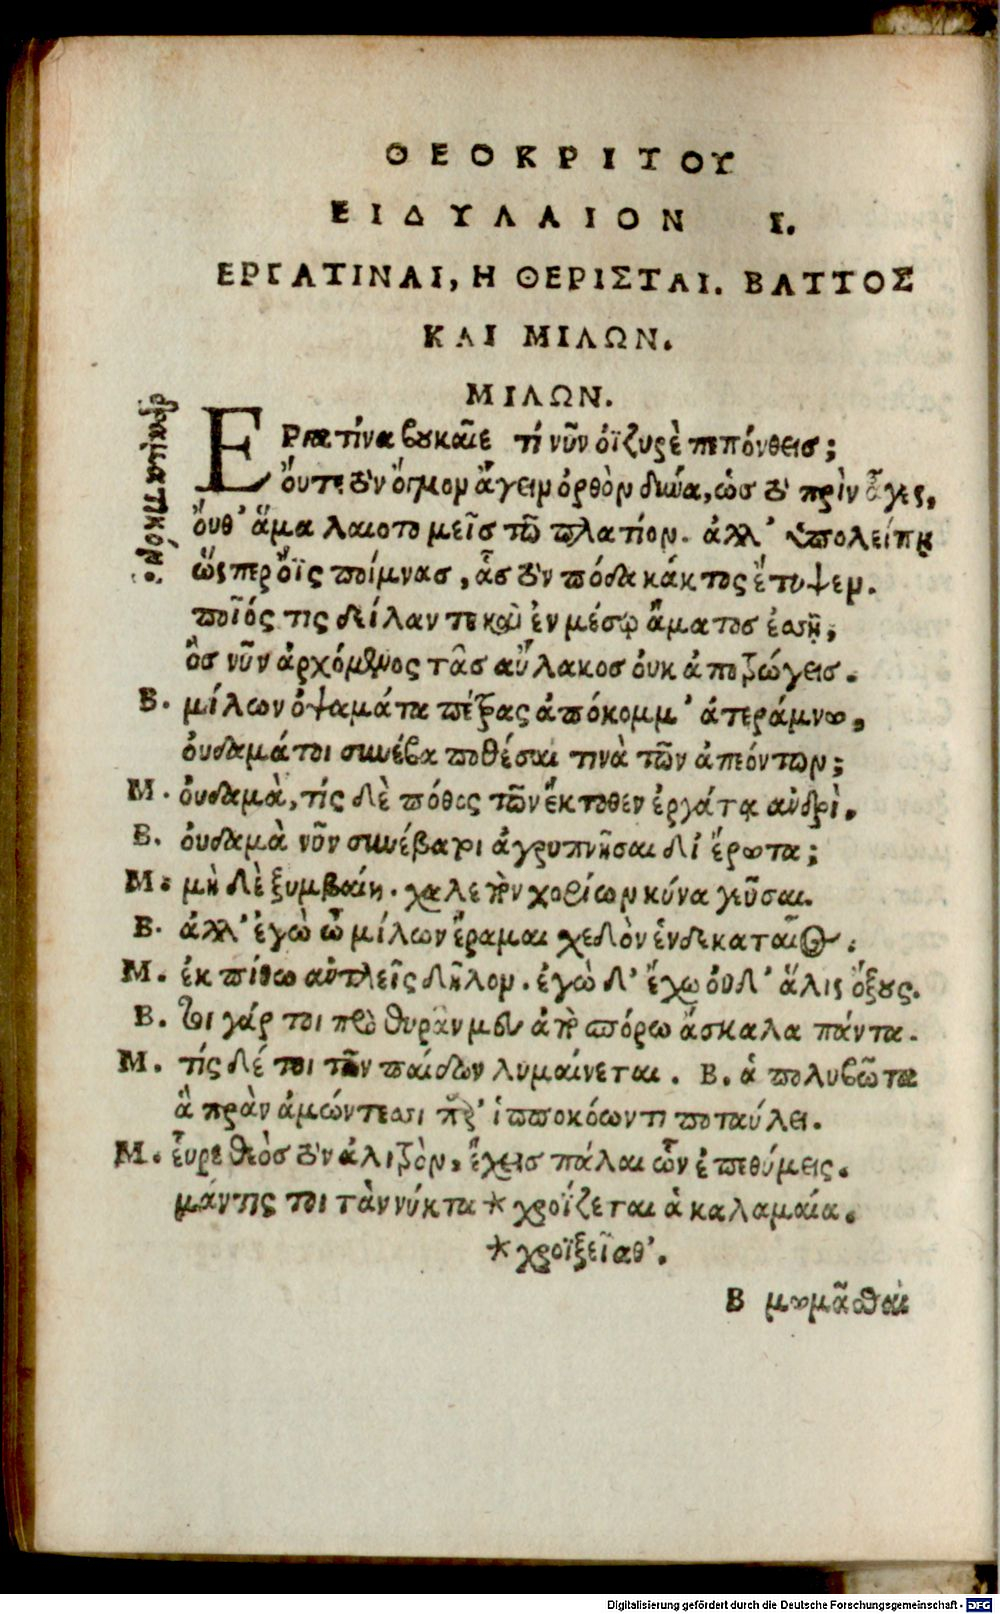 ΘΕΟΚΡΙΤΟΥ
ΕΙΔΥΛΛΙΟΝ Ι.
ΕΡΓΑΤΙΝΑΙ, Η ΘΕΡΙΣΤΑΙ. ΒΑΤΤΟΣ
ΚΑΙ ΜΙΛΩΝ.
ΜΙΛΩΝ.
ΕΡγατίνα βουκαῖε τί νῦν ὀϊζυρὲ πεπόνθεις;
ὄυτε τὸν ὄγμον ἄγειν ὀρθὸν δύνα, ὡς τὸ πρὶν ἆγες,
ὄυθ' ἅμα λαιοτομεῖς τῶ πλατίον. ἀλλ' ἀπολείπῃ
ὥςπερ ὄϊς ποίμνας, ἇς τὸν πόδα κάκτος ἔτυψεν.
ποῖός τις δείλαν τε καὶ ἐν μέσῳ ἄματος ἐσσῇ;
ὃς νῦν ἀρχόμενος τᾶς αὔλακος ὀυκ ἀποτρώγεις.
Β. μίλων ὀψαμάτα πέτρας ἀπόκομμ' ἀτεράμνω,
ὀυδαμά τοι συνέβα ποθέσαι τινὰ τῶν ἀπεόντων;
Μ. ὀυδαμὰ, τίς δὲ πόθος τῶν ἔκτοθεν ἐργάτᾳ ἀνδρὶ.
Β. ὀυδαμὰ νῦν συνέβα τοι ἀγρυπνῆσαι δι' ἔρωτα;
Μ. μὴ δὲ ξυμβαίη. χαλεπὸν χορίων κύνα γεῦσαι.
Β. ἀλλ' ἐγὼ ὦ μίλων ἔραμαι χεδὸν ἑνδεκαταῖος.
Μ. ἐκ πίθω ἀντλεῖς δῆλον. ἐγὼ δ' ἔχω ὀυδ' ἅλις ὄξους.
Β. τοι γάρ τοι πρὸ θυρᾶν μευ ἀπὸ σπόρω ἄσκαλα πάντα.
Μ. τίς δέ τοι τᾶν παίδων λυμαίνεται. Β. ἁ πολυβώτα
ἃ πρὰν ἀμώντεσσι παρ' ἱπποκόωντι ποταύλει.
Μ. εὗρε θεὸς τὸν ἀλιτρὸν, ἔχεις πάλαι ὧν ἐπεθύμεις.
μάντις τοι τὰν νύκτα * χροΐζεται ἁ καλαμαία.
* χροϊξεῖσθ'.
Β μωμᾶσθαί